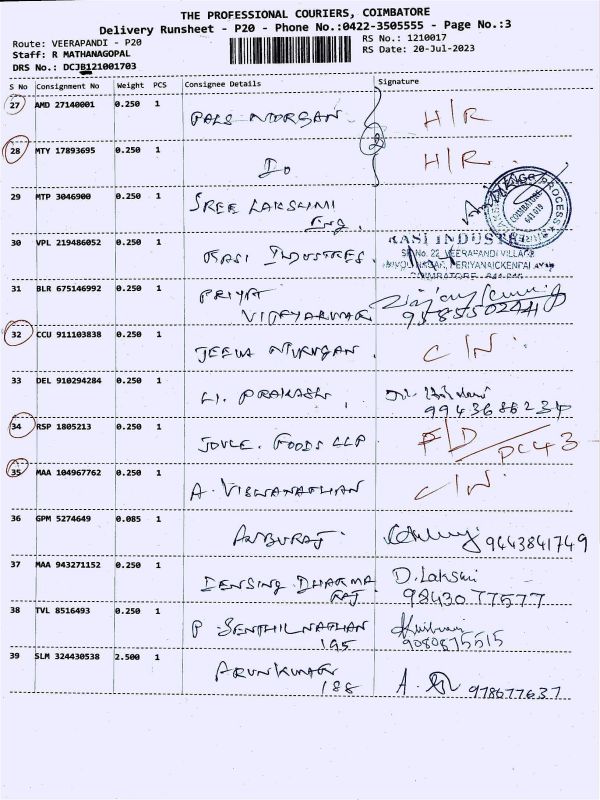 THE PROFESSIONAL COURIERS, COIMBATORE
Delivery Runsheet - P20 - Phone No.:0422-3505555 - Page No.:3
Route: VEERAPANDI - P20
RS No.: 1210017
Staff: R MATHANAGOPAL
RS Date: 20-Jul-2023
DRS No.: DCJB121001703
S No Consignment No Weight PCS Consignee Details Signature
27 AMD 27140001 0.250 1 PALS MURGAN H/R
28 MTY 17893695 0.250 1 Do H/R
2
29 MTP 3046900 0.250 1 SREE LAKSHMI
Eng.
COIMBATORE
641 019
30 VPL 219486052 0.250 1 RASI INDUSTRES.
RASI INDUSTR
SF No. 22, VEERAPANDI VILLAGE
PERIYANAICKENPALAYAM
COIMBATORE
31 BLR 675146992 0.250 1 PRIYA
VIJAYAKUMAR 9585502441
32 CCU 911103838 0.250 1 JEEVA MURUGAN C/N.
33 DEL 910294284 0.250 1 L. PRAKASH
9943686234
34 RSP 1805213 0.250 1 JOVLE. FOODS LLP F/D
PC43
35 MAA 104967762 0.250 1 A. VISWANATHAN C/N.
36 GPM 5274649 0.085 1 ANBURAJ. 9443841749
37 MAA 943271152 0.250 1 DENSING DHARMA D. Lakshmi
RAJ 9843077577
38 TVL 8516493 0.250 1 P SENTHILNATHAN
195 9080875515
39 SLM 324430538 2.500 1 ARUNKUMAR
188 978677637